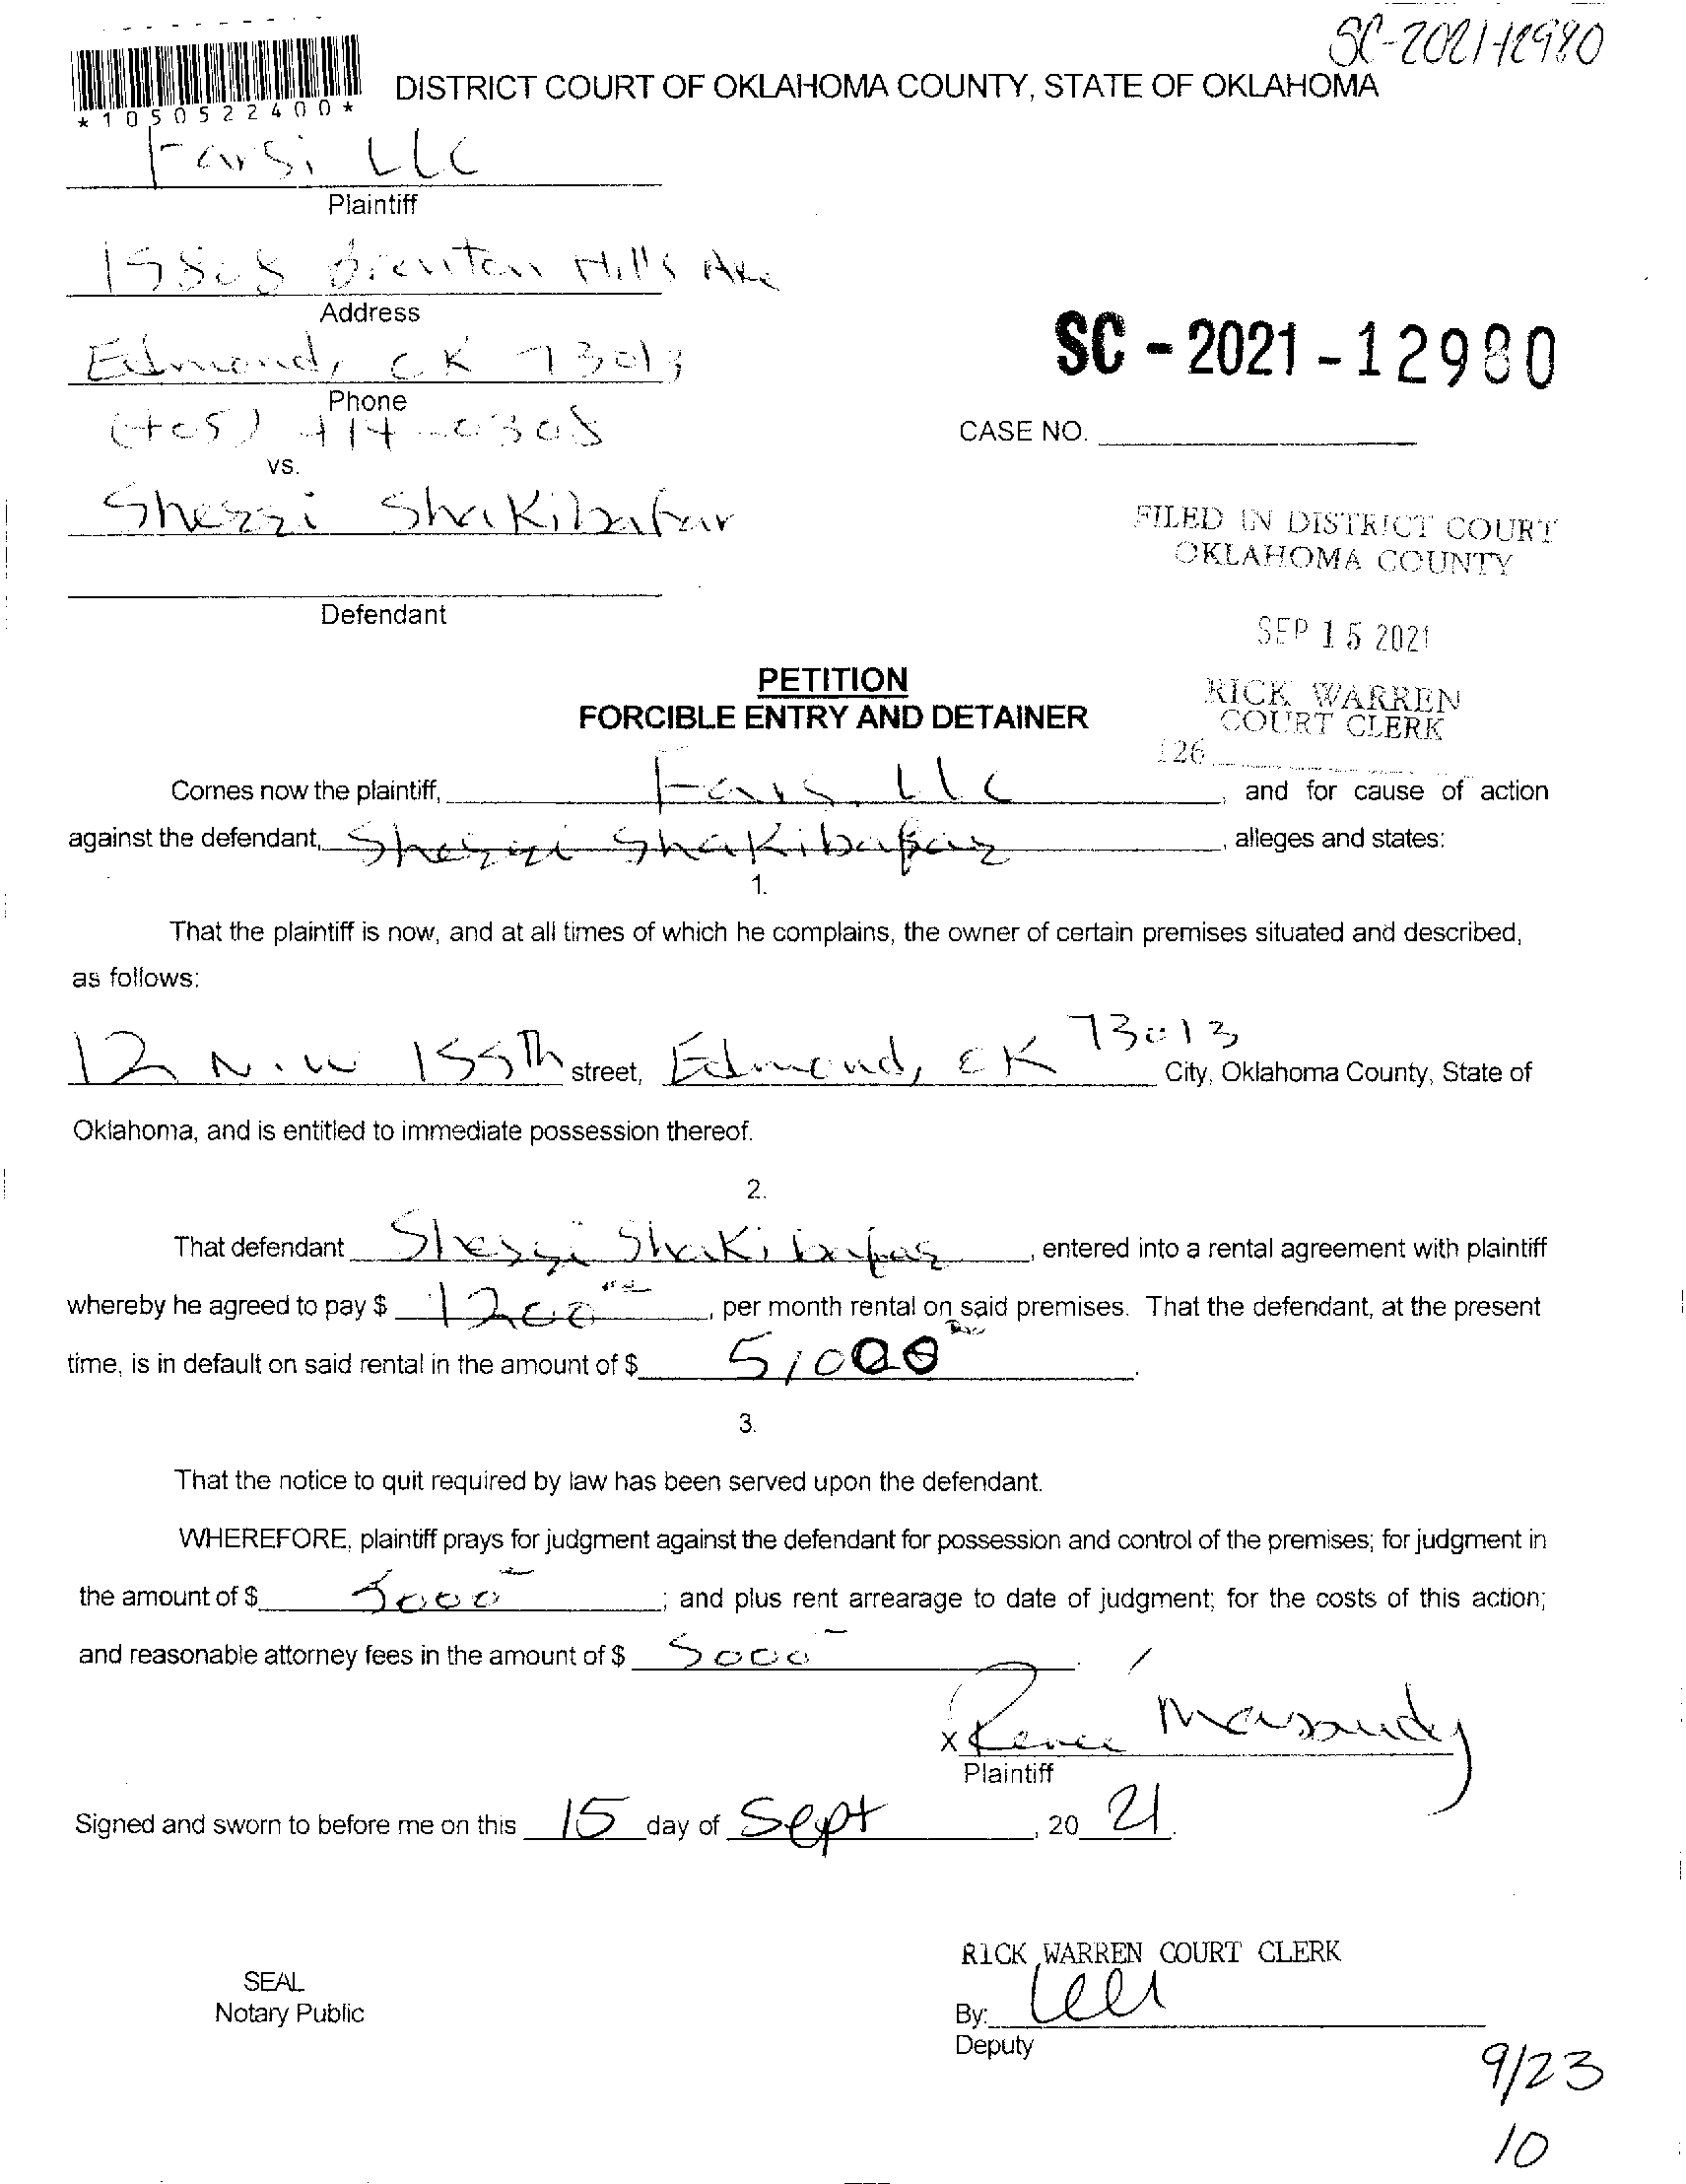 SC-2021-12980
*1050522400*
DISTRICT COURT OF OKLAHOMA COUNTY, STATE OF OKLAHOMA
Farsi LLC
Plaintiff
19808 Hills Ave
Address
Edmond, OK 73013
SC - 2021 - 12980
Phone
(405) 414-0308
CASE NO.
vs.
Sherri Shakibafar
FILED IN DISTRICT COURT
OKLAHOMA COUNTY
Defendant
SEP 15 2021
PETITION
RICK WARREN
FORCIBLE ENTRY AND DETAINER
COURT CLERK
126
Comes now the plaintiff, Farsi LLC, and for cause of action
against the defendant, Sherri Shakibafar, alleges and states:
1.
That the plaintiff is now, and at all times of which he complains, the owner of certain premises situated and described,
as follows:
12 N.W 155Th street, Edmond, OK 73013 City, Oklahoma County, State of
Oklahoma, and is entitled to immediate possession thereof.
2.
That defendant Sherri Shakibafar, entered into a rental agreement with plaintiff
whereby he agreed to pay $ 1200, per month rental on said premises. That the defendant, at the present
time, is in default on said rental in the amount of $ 5,000.
3.
That the notice to quit required by law has been served upon the defendant.
WHEREFORE, plaintiff prays for judgment against the defendant for possession and control of the premises; for judgment in
the amount of $ 5000; and plus rent arrearage to date of judgment; for the costs of this action;
and reasonable attorney fees in the amount of $ 5000.
x Renee Masoudy
Plaintiff
Signed and sworn to before me on this 15 day of Sept, 20 21.
RICK WARREN COURT CLERK
SEAL
Notary Public
By:
Deputy
9/23
10